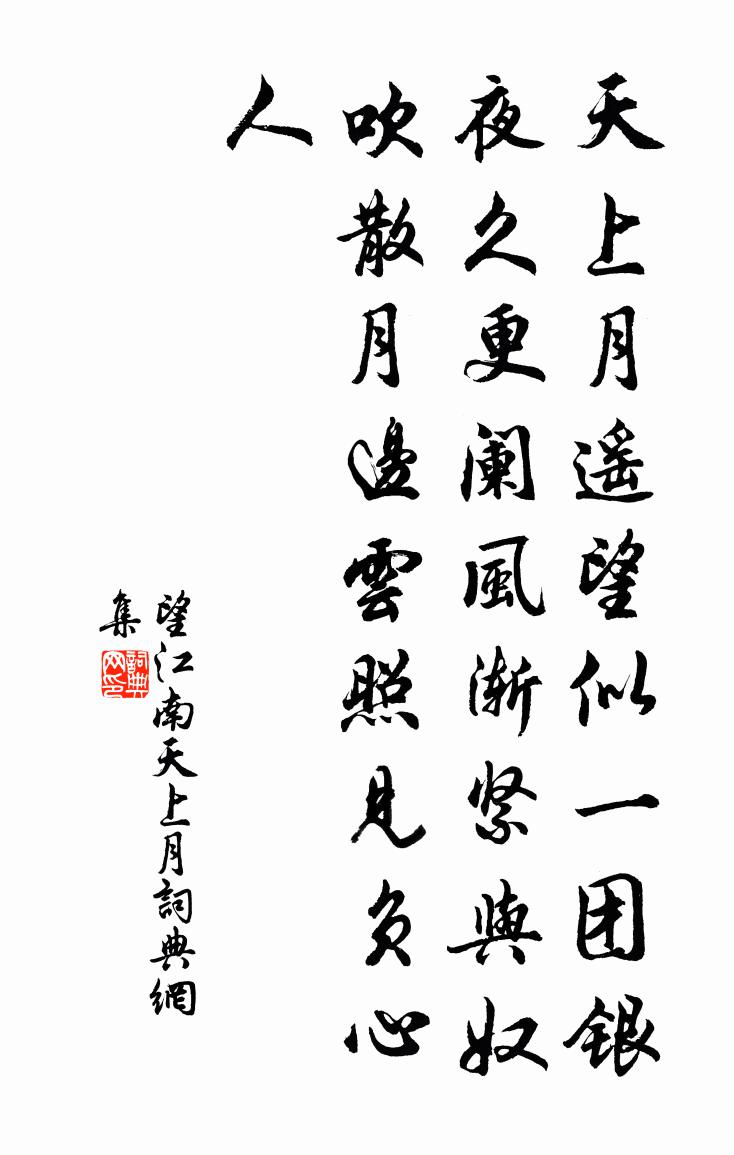 天上月遥望似一团銀
夜久更阑風渐紧與奴
吹散月邊雲照見负心
人
望江南天上月詞典網
集
詞典
网印